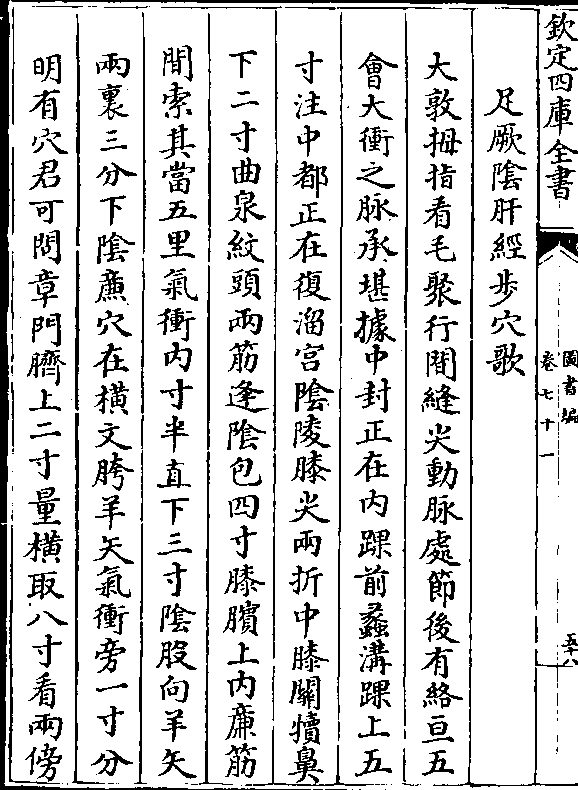 欽定四庫全書
圖書編
卷七十一
五十八
足厥陰肝經步穴歌
大敦拇指看毛聚行間縫尖動脉處節後有絡亘五
會大衝之脉承堪據中封正在内踝前蠡溝踝上五
寸注中都正在復溜宫陰陵膝尖兩折中膝關犢鼻
下二寸曲泉紋頭兩筋逢陰包四寸膝臏上内廉筋
間索其當五里氣衝内寸半直下三寸陰股向羊矢
兩裏三分下陰廉穴在横文胯羊矢氣衝旁一寸分
明有穴君可問章門臍上二寸量横取八寸看兩傍